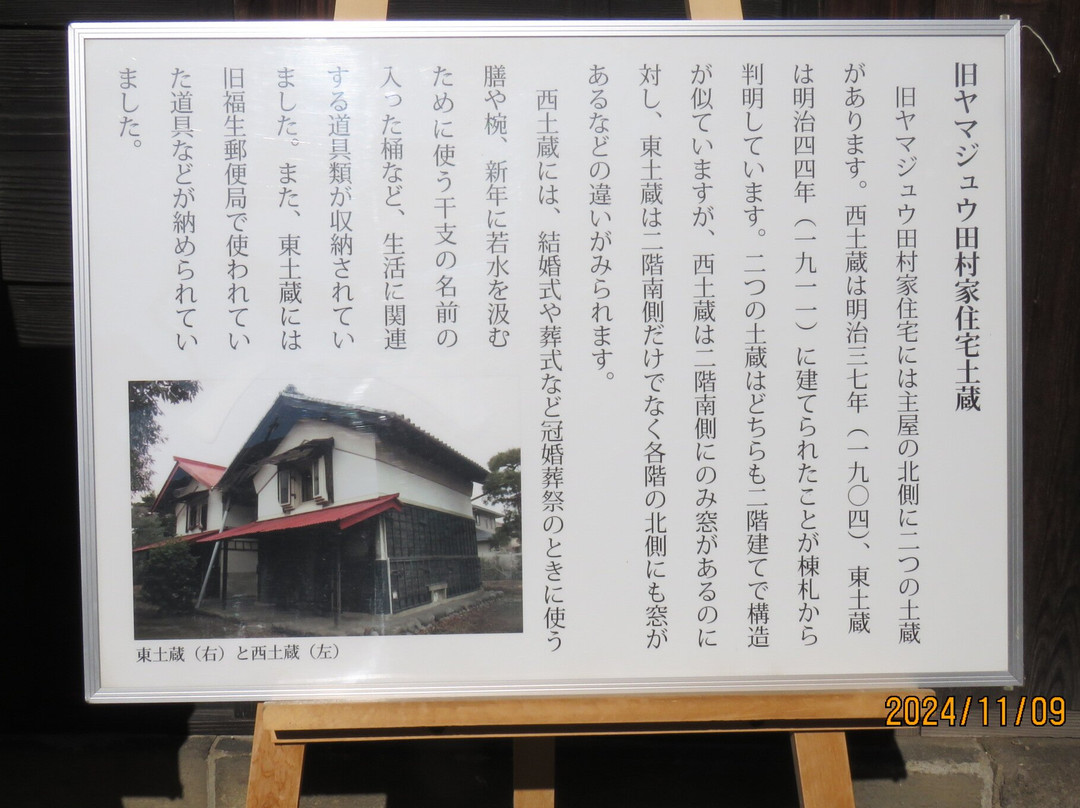 旧ヤマジュウ田村家住宅土蔵
旧ヤマジュウ田村家住宅には主屋の北側に二つの土蔵
があります。西土蔵は明治三七年（一九〇四）、東土蔵
は明治四四年（一九一一）に建てられたことが棟札から
判明しています。二つの土蔵はどちらも二階建てで構造
が似ていますが、西土蔵は二階南側にのみ窓があるのに
対し、東土蔵は二階南側だけでなく各階の北側にも窓が
あるなどの違いがみられます。
西土蔵には、結婚式や葬式など冠婚葬祭のときに使う
膳や椀、新年に若水を汲む
ために使う干支の名前の
入った桶など、生活に関連
する道具類が収納されてい
ました。また、東土蔵には
旧福生郵便局で使われてい
た道具などが納められてい
ました。
東土蔵（右）と西土蔵（左）
2024/11/09